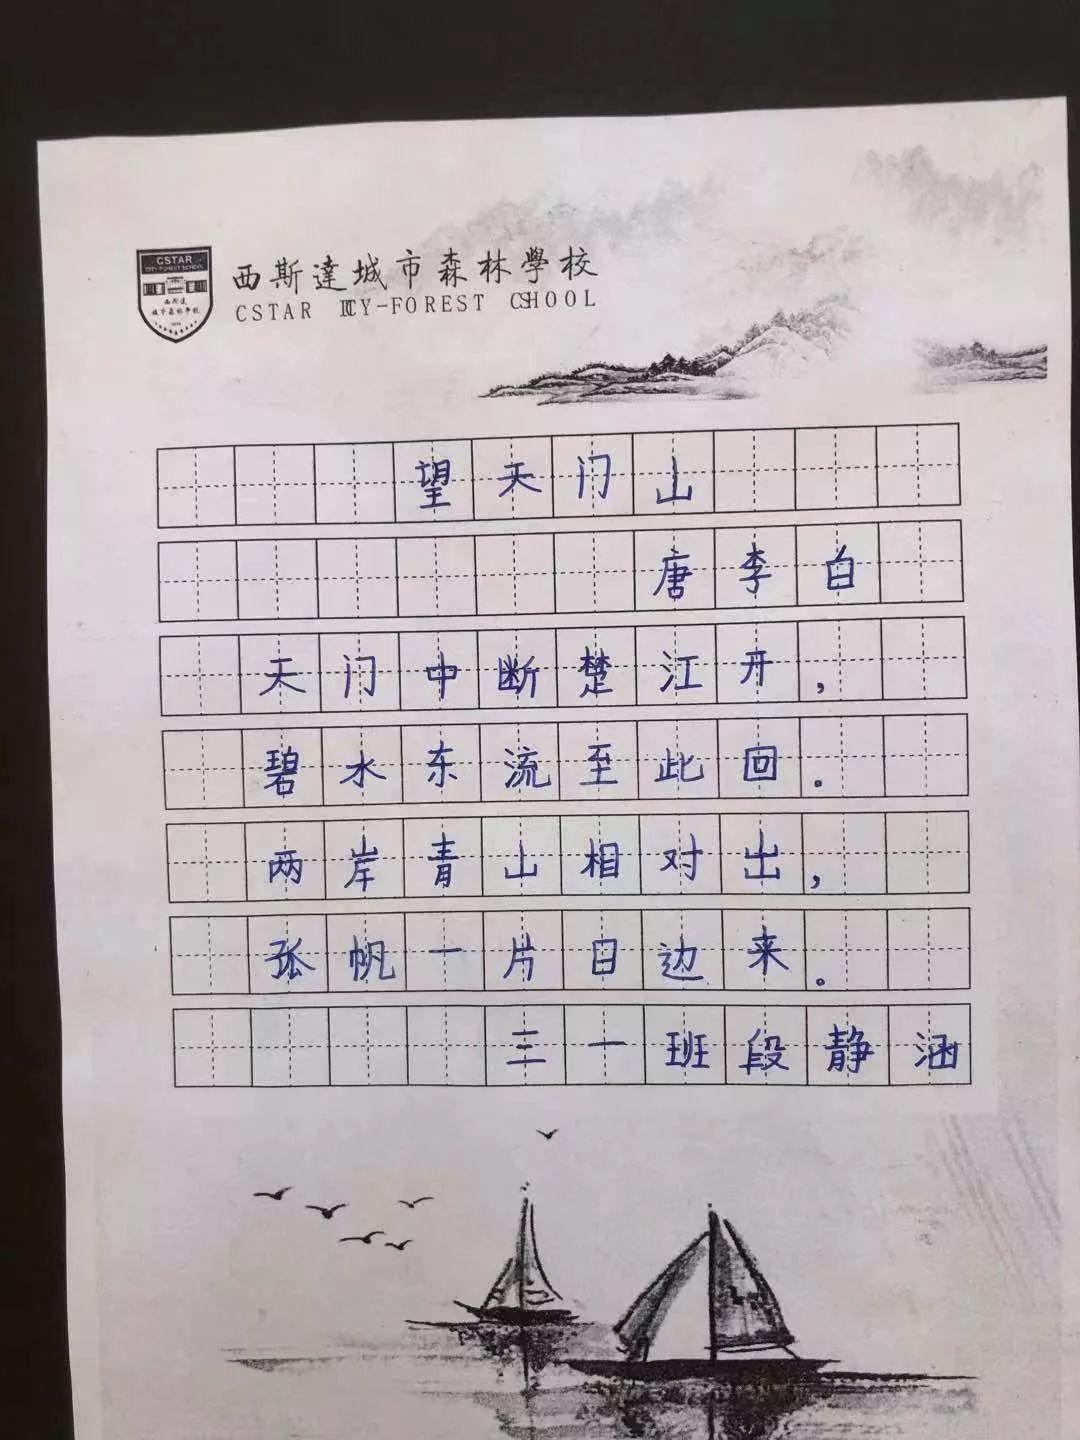 CSTAR
CITY FOREST SCHOOL
西斯达
城市森林学校
西斯達城市森林學校
CSTAR ICTY-FOREST CSHOOL
望天门山
唐李白
天门中断楚江开，
碧水东流至此回。
两岸青山相对出，
孤帆一片日边来。
三一班段静涵